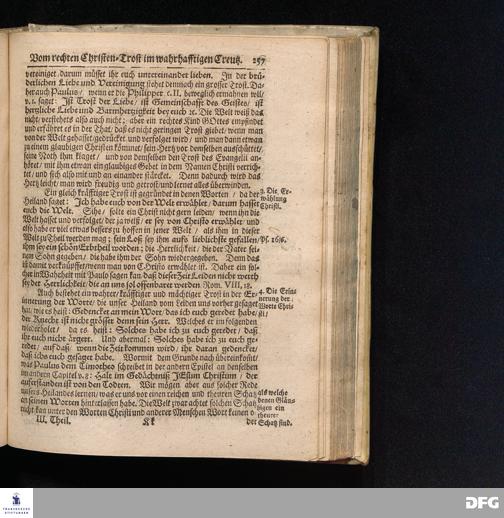 Vom rechten Christen-Trost im wahrhafftigen Creutz. 257
vereiniget, darum müsset ihr euch untereinander lieben. In der brü-
derlichen Liebe und Vereinigung stehet dennoch ein grosser Trost. Da-
her auch Paulus / wenn er die Philipper c. II. beweglich ermahnen will /
v. 1. saget: Ist Trost der Liebe / ist Gemeinschafft des Geistes / ist
hertzliche Liebe und Barmhertzigkeit bey euch ꝛc. Die Welt weiß das
nicht / verstehets also auch nicht; aber ein rechtes Kind GOttes empfindet
und erfähret es in der That / daß es nicht geringen Trost giebet / wenn man
von der Welt gehasset / gedrücket und verfolget wird / und man dann etwan
zu einem glaubigen Christen kömmet / sein Hertz vor demselben ausschüttet /
seine Noth ihm klaget / und von demselben den Trost des Evangelii an-
höret / mit ihm etwan ein glaubiges Gebet in dem Namen Christi verrich-
tet / und sich also mit und an einander stärcket. Denn dadurch wird das
Hertz leicht / man wird freudig und getrost und lernet alles überwinden.
Ein gleich kräfftiger Trost ist gegründet in denen Worten / da der
Heiland saget: Ich habe euch von der Welt erwählet / darum hasset
euch die Welt. Sihe / solte ein Christ nicht gern leiden / wenn ihn die
Welt hasset und verfolget / der da weiß / er sey von Christo erwählet / und
also habe er viel etwas bessers zu hoffen in jener Welt / als ihm in dieser
Welt zu Theil werden mag; sein Loß sey ihm aufs lieblichste gefallen /
ihm sey ein schön Erbtheil worden; die Herrlichkeit / die der Vater sei-
nem Sohn gegeben / die habe ihm der Sohn wiedergegeben. Denn das
ist damit verknüpffet / wenn man von Christo erwählet ist. Daher ein sol-
cher in Wahrheit mit Paulo sagen kan daß dieser Zeit Leiden nicht werth
sey der Herrlichkeit / die an uns sol offenbaret werden Rom. VIII, 18.
Auch bestehet ein wahrer / kräfftiger und mächtiger Trost in der Er-
innerung der Worte / die unser Heiland von Leiden uns vorher gesaget
hat / wie es heist: Gedencket an mein Wort / das ich euch geredet habe /
der Knecht ist nicht grösser denn sein Herr. Welches er im folgenden
wiederholet / da es heist: Solches habe ich zu euch geredet / daß
ihr euch nicht ärgert. Und abermal: Solches habe ich zu euch ge-
redet / auf daß / wenn die Zeit kommen wird / ihr daran gedencket /
daß ichs euch gesaget habe. Wormit dem Grunde nach übereinkömt /
was Paulus dem Timotheo schreibet in der andern Epistel an denselben
im andern Capitel v. 8: Halt im Gedächtniß JEsum Christum / der
auferstanden ist von den Todten. Wir mögen aber aus solcher Rede
unsers Heilandes lernen / was er uns vor einen reichen und theuren Schatz
an seinen Worten hinterlassen habe. Die Welt zwar achtet solchen Schatz
nicht / kan unter den Worten Christi und anderer Menschen Wort keinen
III. Theil. Kk der
3. Die Er-
wählung
Christi.
Ps. 16/6.
4. Die Erin-
nerung der
Worte Chri-
sti /
als welche
denen Gläu-
bigen ein
theurer
Schatz sind.
FRANCKESCHE
STIFTUNGEN
DFG